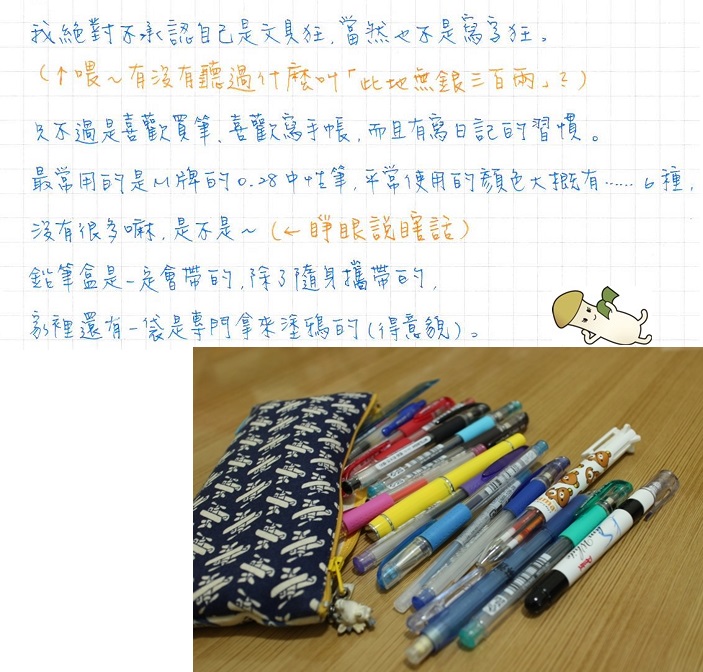 我絕對不承認自己是文具狂，當然也不是寫字狂。
(↑喂～有沒有聽過什麼叫「此地無銀三百兩」？)
只不過是喜歡買筆、喜歡寫手帳，而且有寫日記的習慣。
最常用的是M牌的0.28中性筆，平常使用的顏色大概有……6種，
沒有很多嘛，是不是～(←睜眼說瞎話)
鉛筆盒是一定會帶的，除了隨身攜帶的，
家裡還有一袋是專門拿來塗鴉的(得意貌)。
Pentel